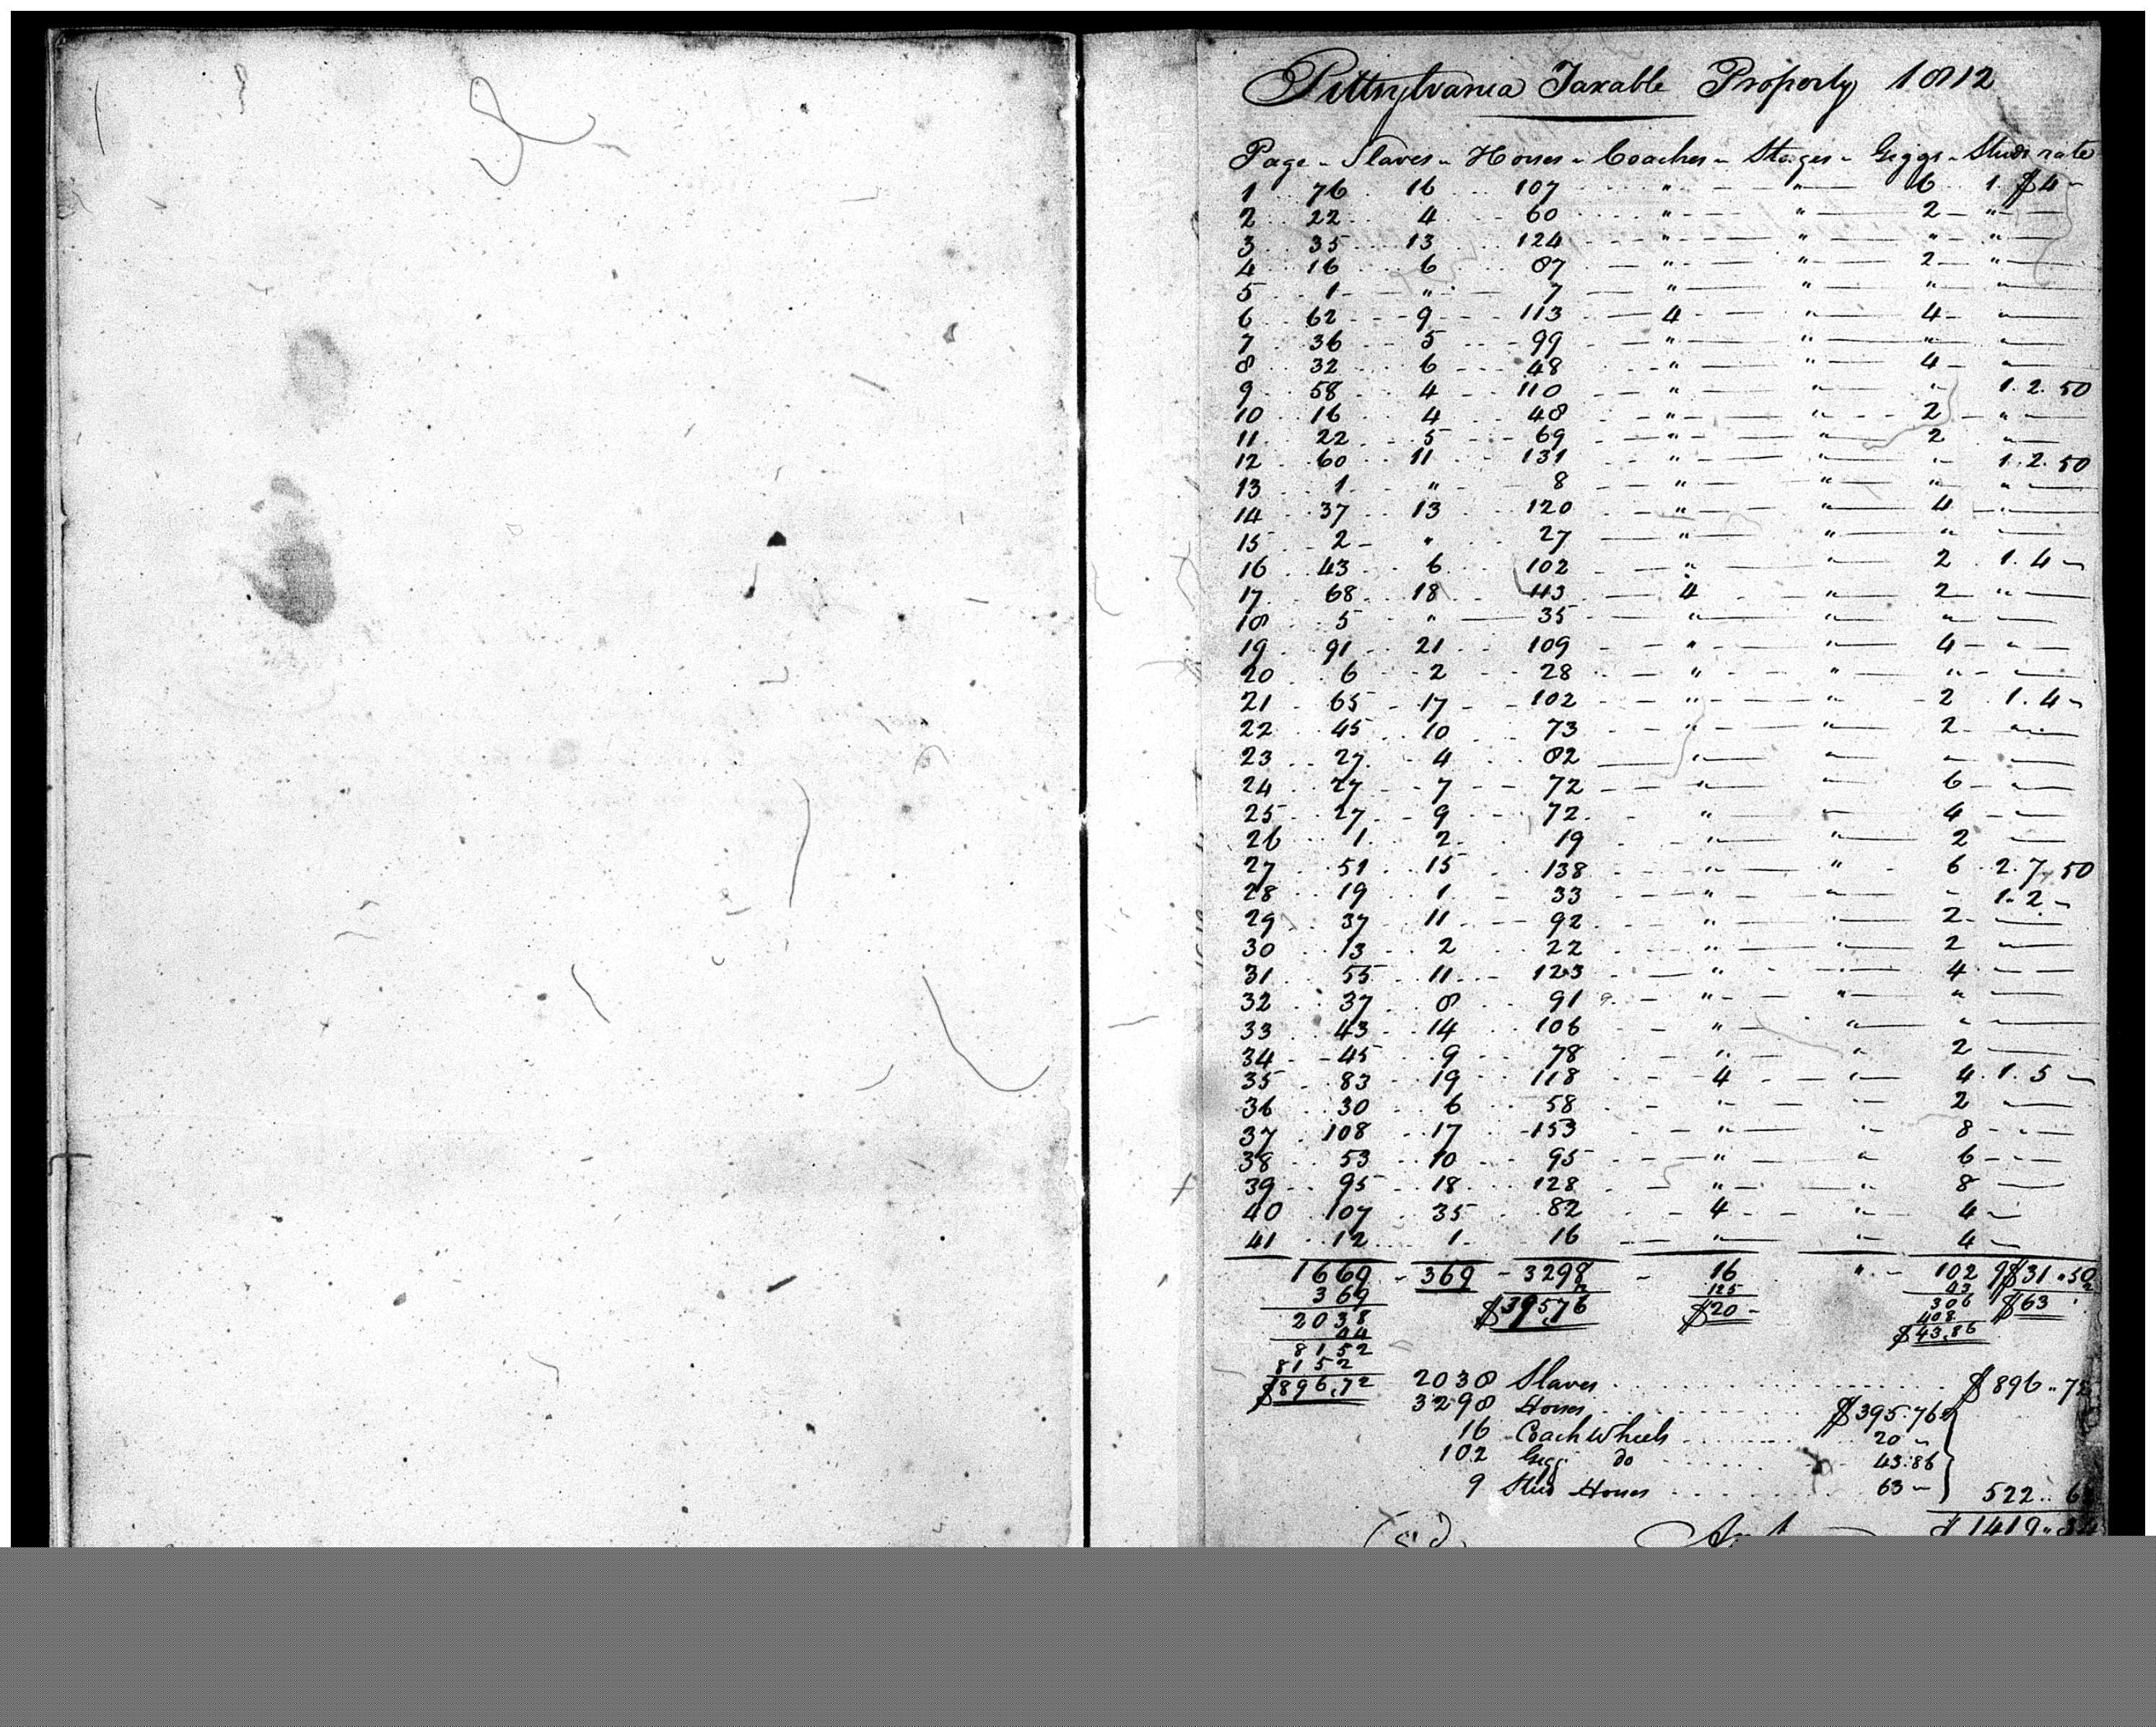 Pittsylvania Taxable Property 1812
Page - Slaves - Horses - Coaches - Stages - Giggs - Studs rate
1 76 16 107 " " 6 1 $4 -
2 22 4 60 " " 2 "
3 35 13 124 " " " "
4 16 6 87 " " 2 "
5 1 " 7 " " " "
6 62 9 113 4 " 4 "
7 36 5 99 " " " "
8 32 6 48 " " 4 "
9 58 4 110 " " " 1. 2. 50
10 16 4 48 " " 2 "
11 22 5 69 " " 2 "
12 60 11 131 " " " 1. 2. 50
13 1 " 8 " " " "
14 37 13 120 " " 4 "
15 2 " 27 " " " "
16 43 6 102 " " 2 1. 4 -
17 68 18 113 4 " 2 "
18 5 " 35 " " " "
19 91 21 109 " " 4 "
20 6 2 28 " " " "
21 65 17 102 " " 2 1. 4 -
22 45 10 73 " " 2 "
23 27 4 82 " " " "
24 27 7 72 " " 6 "
25 27 9 72 " " 4 "
26 1 2 19 " " 2 "
27 51 15 138 " " 6 2. 7. 50
28 19 1 33 " " " 1. 2 -
29 37 11 92 " " 2 "
30 13 2 22 " " 2 "
31 55 11 123 " " 4 "
32 37 8 91 " " " "
33 43 14 106 " " " "
34 45 9 78 " " 2
35 83 19 118 4 " 4 1. 5 -
36 30 6 58 " " 2 "
37 108 17 153 " " 8 "
38 53 10 95 " " 6 "
39 95 18 128 " " 8
40 107 35 82 4 " 4 "
41 12 1 16 " " 4 "
1669 - 369 - 3298 16 " 102 9 $31.50
369 12 125 43 2
2038 $395,76 $20 - 306 $63
44 408
8152 $43.86
8152
$896,72
2038 Slaves $896..72
3298 Horses $395.76
16 Coach Wheels 20 -
102 Gigg do 43.86
9 Stud Horses 63 - 522.. 62
$1419..34